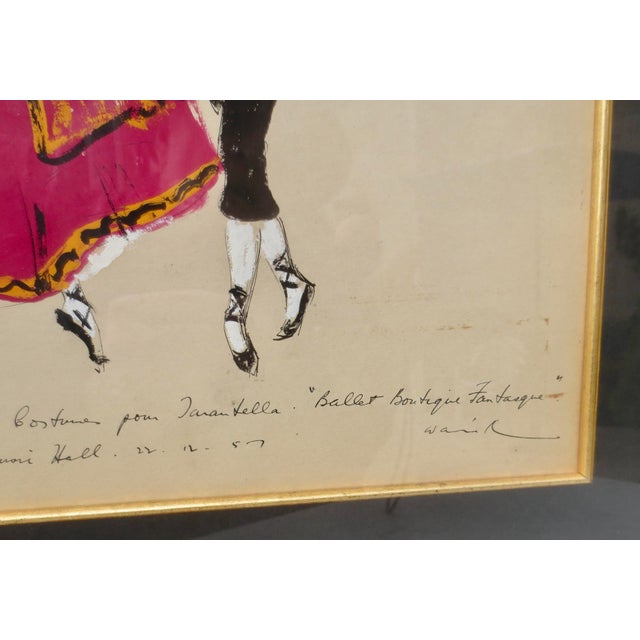 Costumes pour Tarantella. "Ballet Boutique Fantasque".
Hall. 22. 12. 57